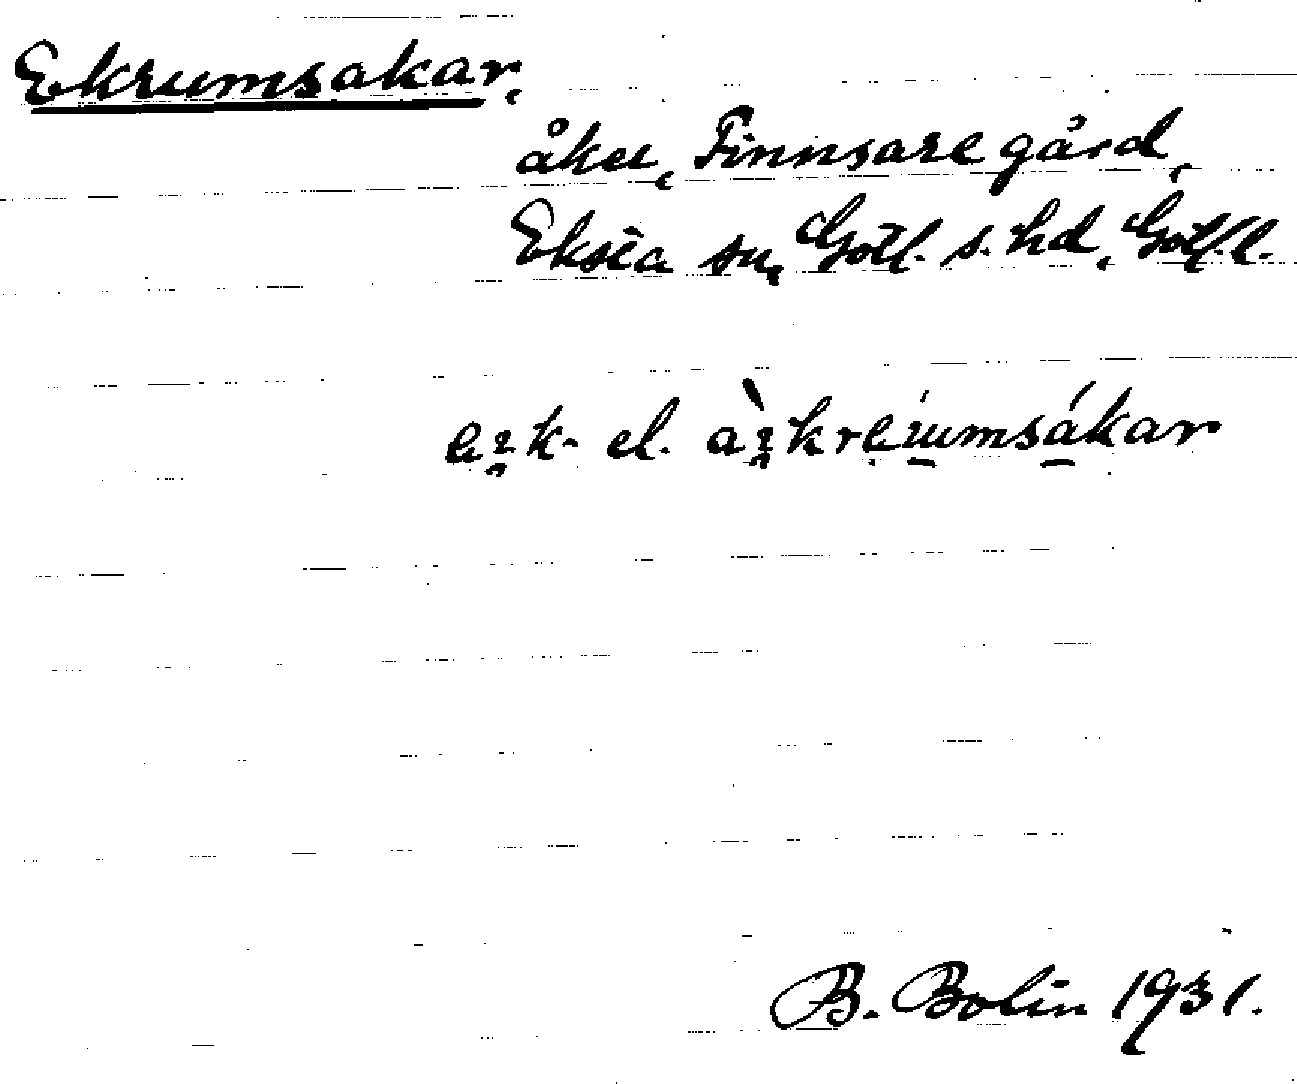 Ekrumsakar,
åker, Finnsare gård,
Eksta sn, Gotl. s. hd, Gotl. l.
el.
B. Bolin 1931.